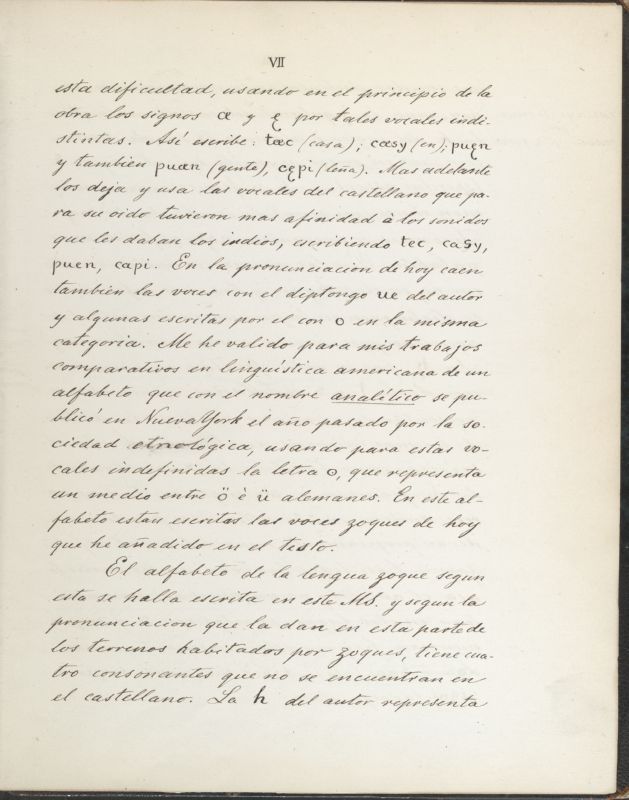 VII
esta dificultad, usando en el principio de la
obra los signos œ y ę por tales vocales indi-
stintas. Así escribe: tœc (casa); cœsy (en); puęn
y tambien puœn (gente), cępi (leña). Mas adelante
los deja y usa las vocales del castellano que pa-
ra su oido tuvieron mas afinidad à los sonidos
que les daban los indios, escribiendo tec, casy,
puen, capi. En la pronunciacion de hoy caen
tambien las voces con el diptongo ue del autor
y algunas escritas por el con o en la misma
categoria. Me he valido para mis trabajos
comparativos en linguística americana de un
alfabeto que con el nombre analítico se pu-
blicó en Nueva York el año pasado por la so-
ciedad etnológica, usando para estas vo-
cales indefinidas la letra o, que representa
un medio entre ö è ü alemanes. En este al-
fabeto estan escritas las voces zoques de hoy
que he añadido en el testo.
El alfabeto de la lengua zoque segun
esta se halla escrita en este MS. y segun la
pronunciacion que la dan en esta parte de
los terrenos habitados por zoques, tiene cua-
tro consonantes que no se encuentran en
el castellano. La h del autor representa